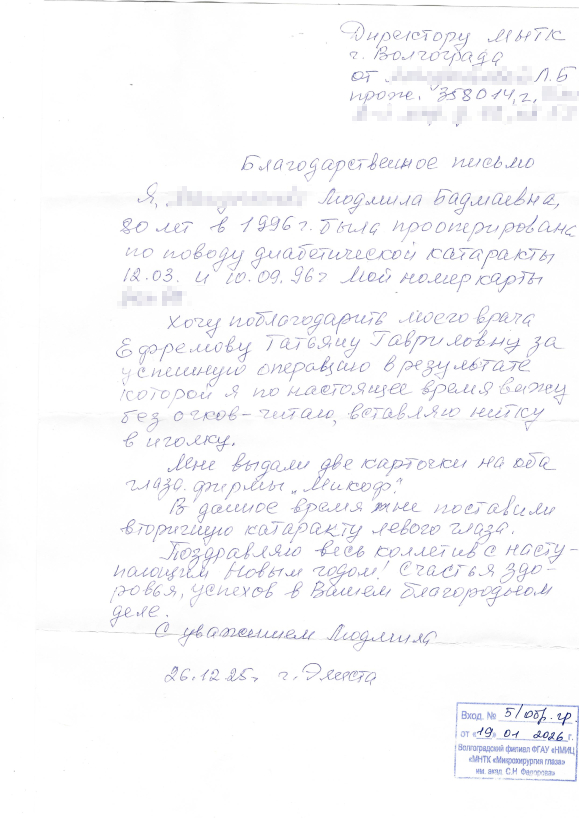 Директору МНТК
г. Волгограда
от Л.Б
прож. 358014, г.
Благодарственное письмо
Я, Людмила Бадмаевна,
80 лет в 1996г. была прооперирована
по поводу диабетической катаракты
12.03. и 10.09.96г Мой номер карты
Хочу поблагодарить моего врача
Ефремову Татьяну Гавриловну за
успешную операцию в результате
которой я по настоящее время вижу
без очков - читаю, вставляю нитку
в иголку.
Мне выдали две карточки на оба
глаза. фирмы „Микоф".
В данное время мне поставили
вторичную катаракту левого глаза.
Поздравляю весь коллетив с насту-
пающим Новым годом! Счастья здо-
ровья, успехов в Вашем благородном
деле.
С уважением Людмила
26.12.25г. г. Элиста
Вход. № 5/обр. гр.
от «19» 01 2026 г.
Волгоградский филиал ФГАУ «НМИЦ
«МНТК «Микрохирургия глаза»
им. акад. С.Н. Федорова»